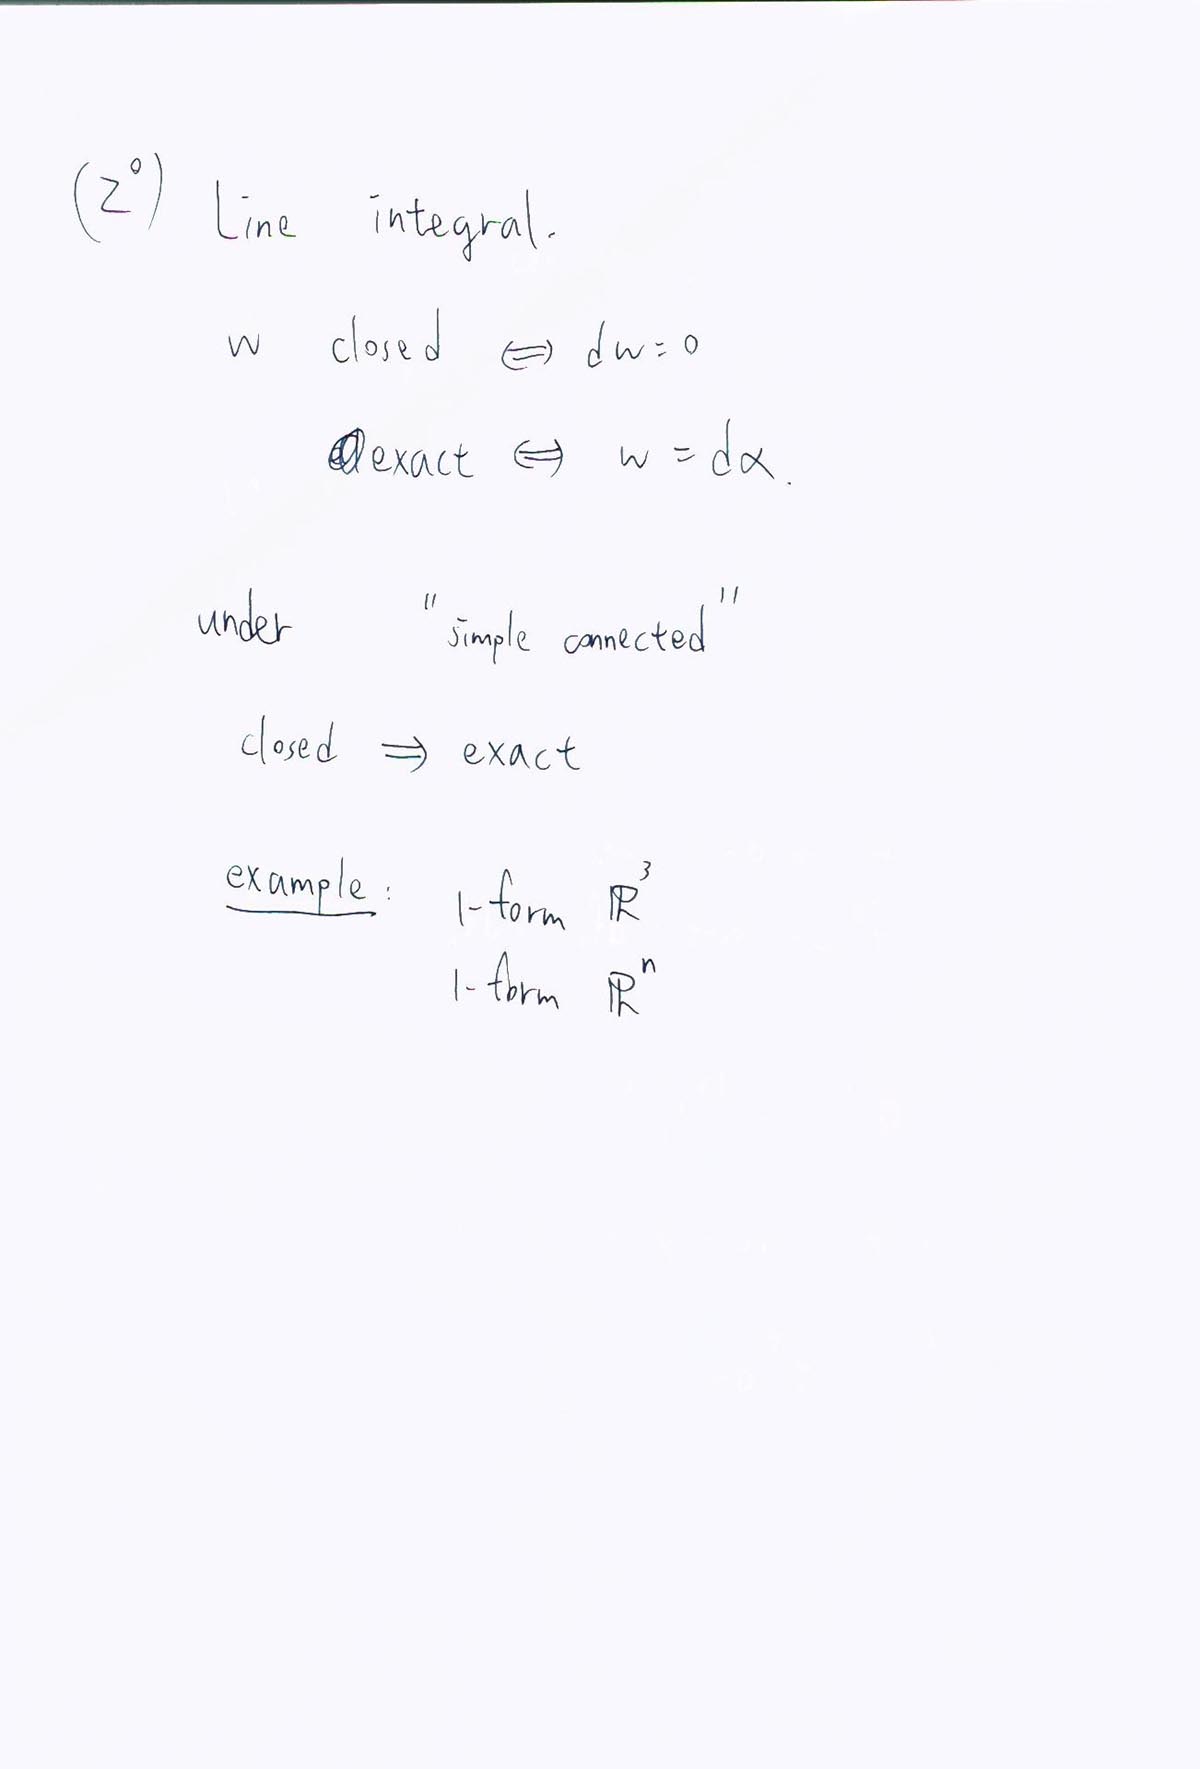 (2°) Line integral.
w closed ⇔ dw=0
exact ⇔ w = dα.
under "simple connected"
closed ⇒ exact
example: 1-form ℝ³
1-form ℝⁿ